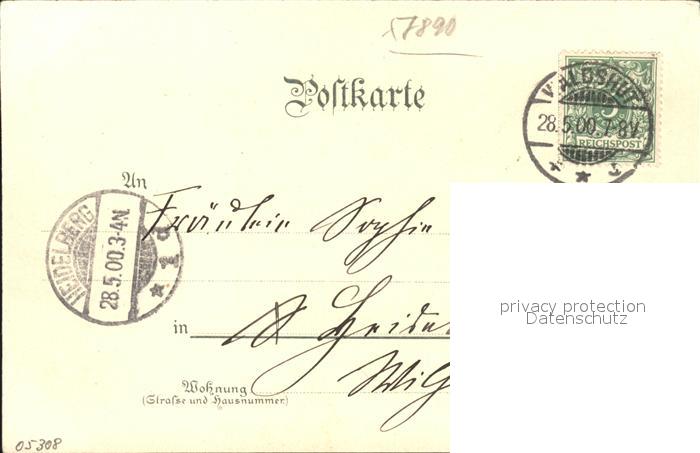 57890
Postkarte
WALDSHUT
28.5.00.7-8V.
REICHSPOST
An
Fräulein Sophie
HEIDELBERG
28.5.00.3-4N.
* 1 a
privacy protection
Datenschutz
in
Wohnung
(Straße und Hausnummer)
05308